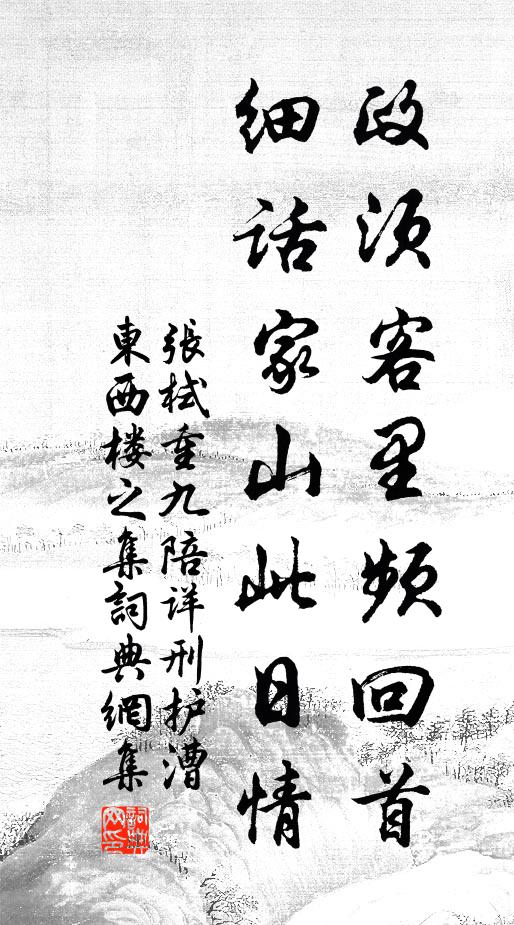 政须客里频回首
细话家山此日情
張栻重九陪详刑护漕
東西楼之集詞典網集
詞典网印